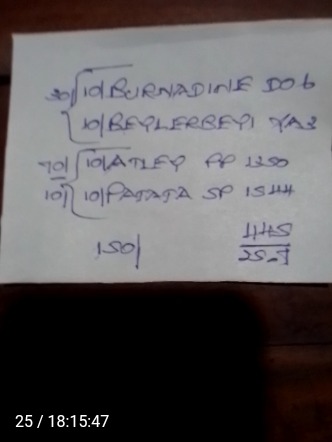 30/ 10/ BURNADINE DOB
10/ BEYLERBEYI YA3
70/ 10/ ATLEY PP 1350
10/ 10/ PATATA SP 1544
150/ 445
25 / 18:15:47